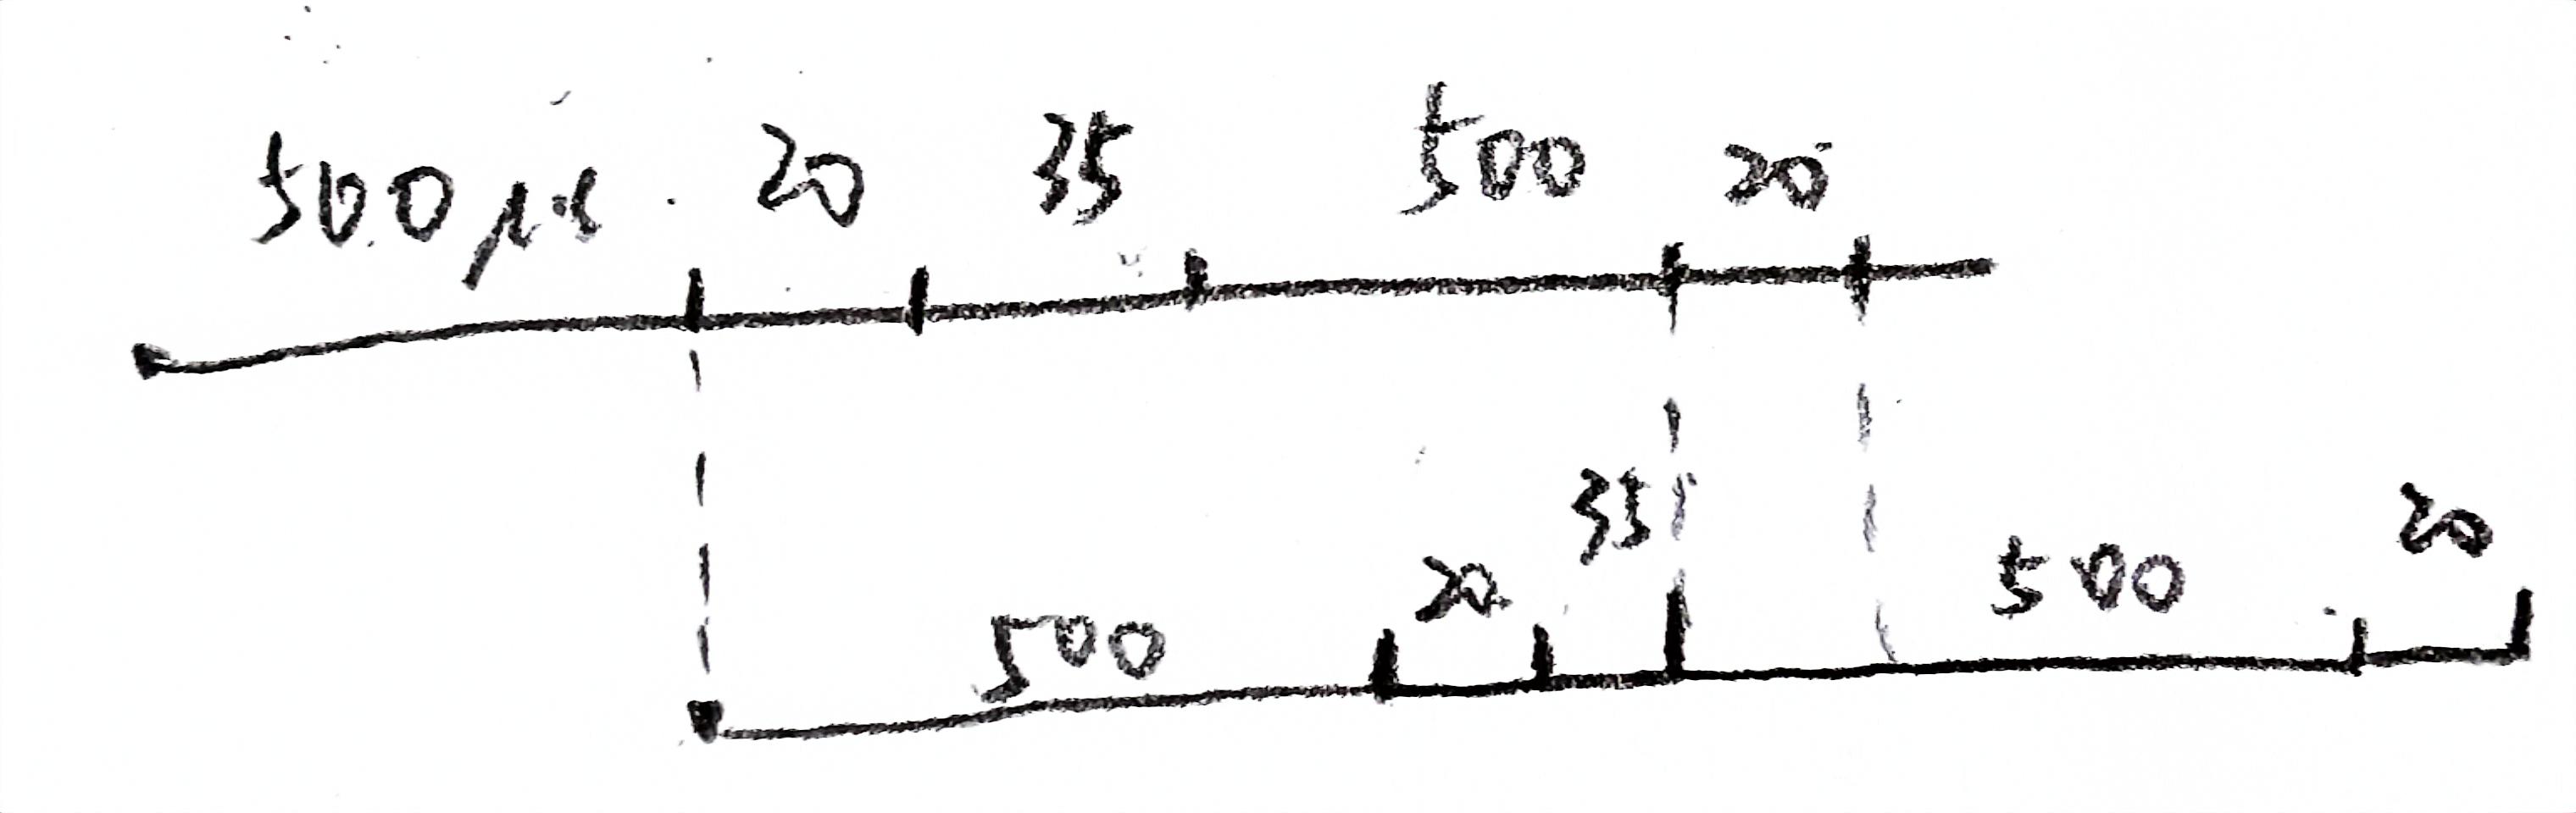 500 μs 20 35 500 20
500 20 35 500 20